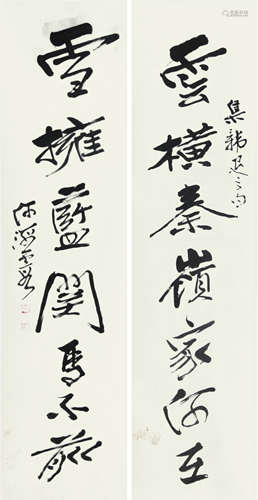 雲橫秦嶺家何在
集韓退之句
雪擁藍關馬不前